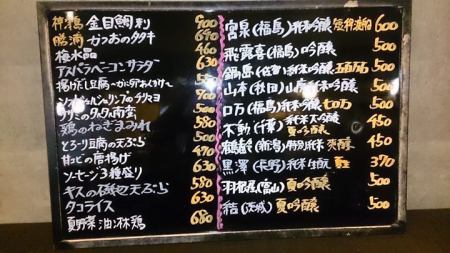 神湊 金目鯛刺 900
勝浦 かつおのタタキ 690
梅水晶 460
アスパラベーコンサラダ 630
揚げだし豆腐 580
鶏のねぎまみれ 580
とろ〜り豆腐の天ぷら 470
甘エビの唐揚げ 630
ソーセージ3種盛り 580
キスの磯辺天ぷら 630
タコライス
夏野菜 油淋鶏 680
宮泉(福島)純米吟醸 600
飛露喜(福島)吟醸 500
鍋島(佐賀)純米吟醸 五百万石 500
山本(秋田)純米吟醸 500
ロ万(福島)純米吟醸 七ロ万 500
不動(千葉)純米大吟醸 夏吟醸 450
鶴齢(新潟)特別純米 爽醇 450
黒澤(長野)純米 生 390
羽根屋(富山)夏吟醸 500
結(茨城)夏吟醸 500